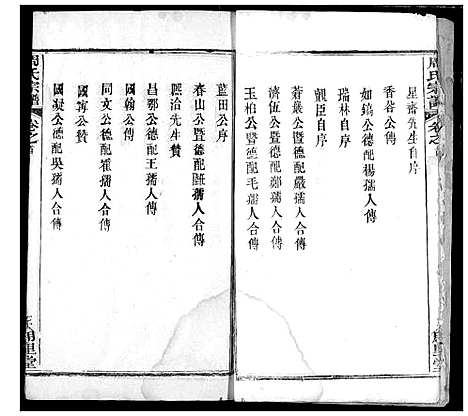 周氏宗譜
卷之首
星齋先生自序
香谷公傳
如鎬公德配楊孺人合傳
瑞林自序
覲臣自序
蒼巖公暨德配嚴孺人合傳
濟伍公暨德配鄭孺人合傳
玉柏公暨德配毛孺人合傳
藍田公序
春山公暨德配孺人合傳
熙治先生贊
昌鄂公德配王孺人合傳
國翰公傳
同文公德配崔孺人合傳
國寧公贊
國凝公德配吳孺人合傳
周氏宗譜
卷之首